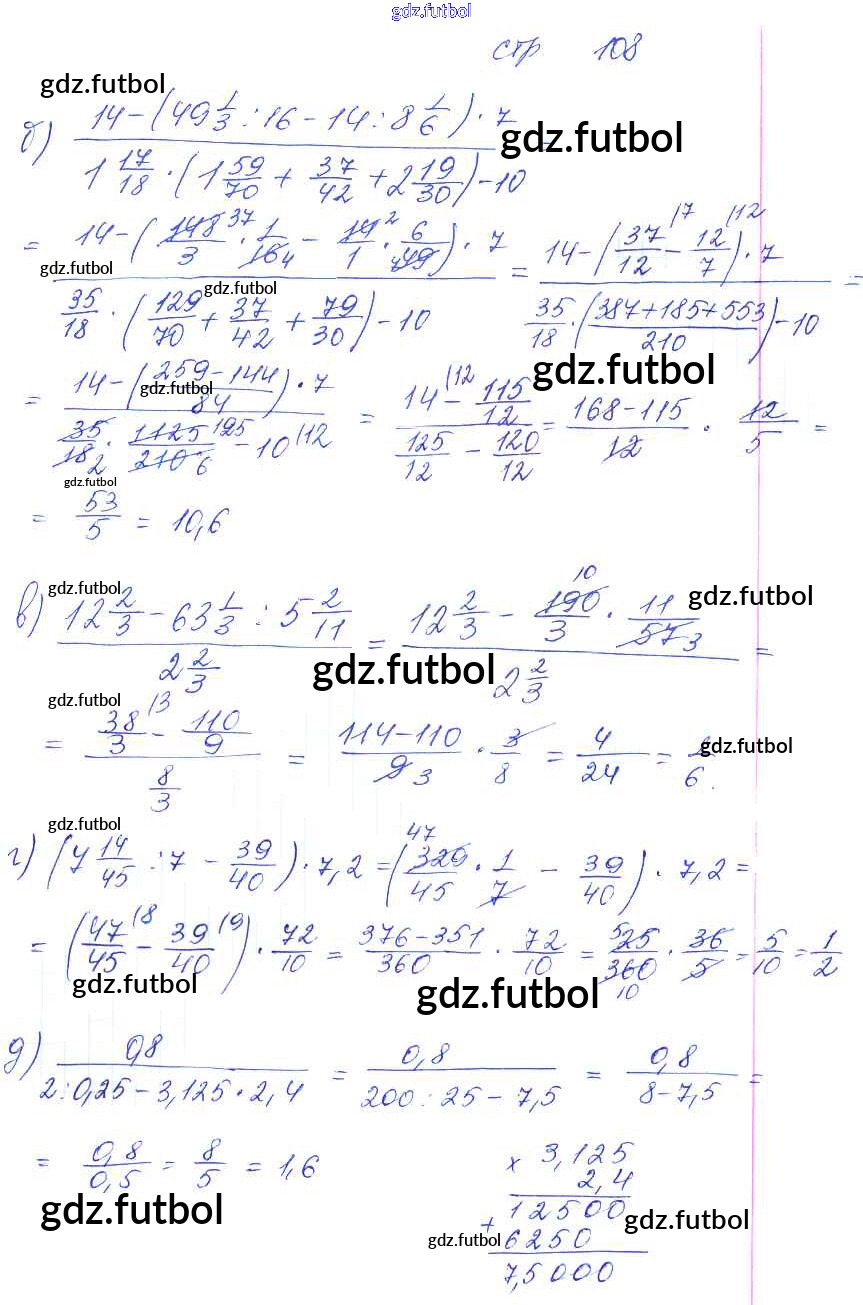 gdz.futbol
стр 108
gdz.futbol
б) (14 − (49 1/3 : 16 − 14 : 8 1/6) · 7) / (1 17/18 · (1 59/70 + 37/42 + 2 19/30) − 10) =
gdz.futbol
= (14 − (148/3 · 1/16 − 14/1 · 6/49) · 7) / (35/18 · (129/70 + 37/42 + 79/30) − 10) = (14 − (37/12 − 12/7) · 7) / (35/18 · ((387+185+553)/210) − 10) =
gdz.futbol
gdz.futbol
gdz.futbol
= (14 − ((259−144)/84) · 7) / (35/18 · 1125/210 − 10) = (14 − 115/12) / (125/12 − 120/12) = (168−115)/12 · 12/5 =
gdz.futbol
gdz.futbol
= 53/5 = 10,6
gdz.futbol
в) (12 2/3 − 63 1/3 : 5 2/11) / (2 2/3) = (12 2/3 − 190/3 · 11/57) / (2 2/3) =
gdz.futbol
gdz.futbol
gdz.futbol
= (38/3 − 110/9) / (8/3) = (114−110)/9 · 3/8 = 4/24 = 1/6.
gdz.futbol
gdz.futbol
г) (7 14/45 : 7 − 39/40) · 7,2 = (329/45 · 1/7 − 39/40) · 7,2 =
= (47/45 − 39/40) · 72/10 = (376−351)/360 · 72/10 = 25/360 · 36/5 = 5/10 = 1/2
gdz.futbol
gdz.futbol
д) 0,8 / (2:0,25 − 3,125 · 2,4) = 0,8 / (200 : 25 − 7,5) = 0,8 / (8 − 7,5) =
= 0,8/0,5 = 8/5 = 1,6
× 3,125
2,4
gdz.futbol
12500
gdz.futbol
+ 6250
gdz.futbol
7,5000